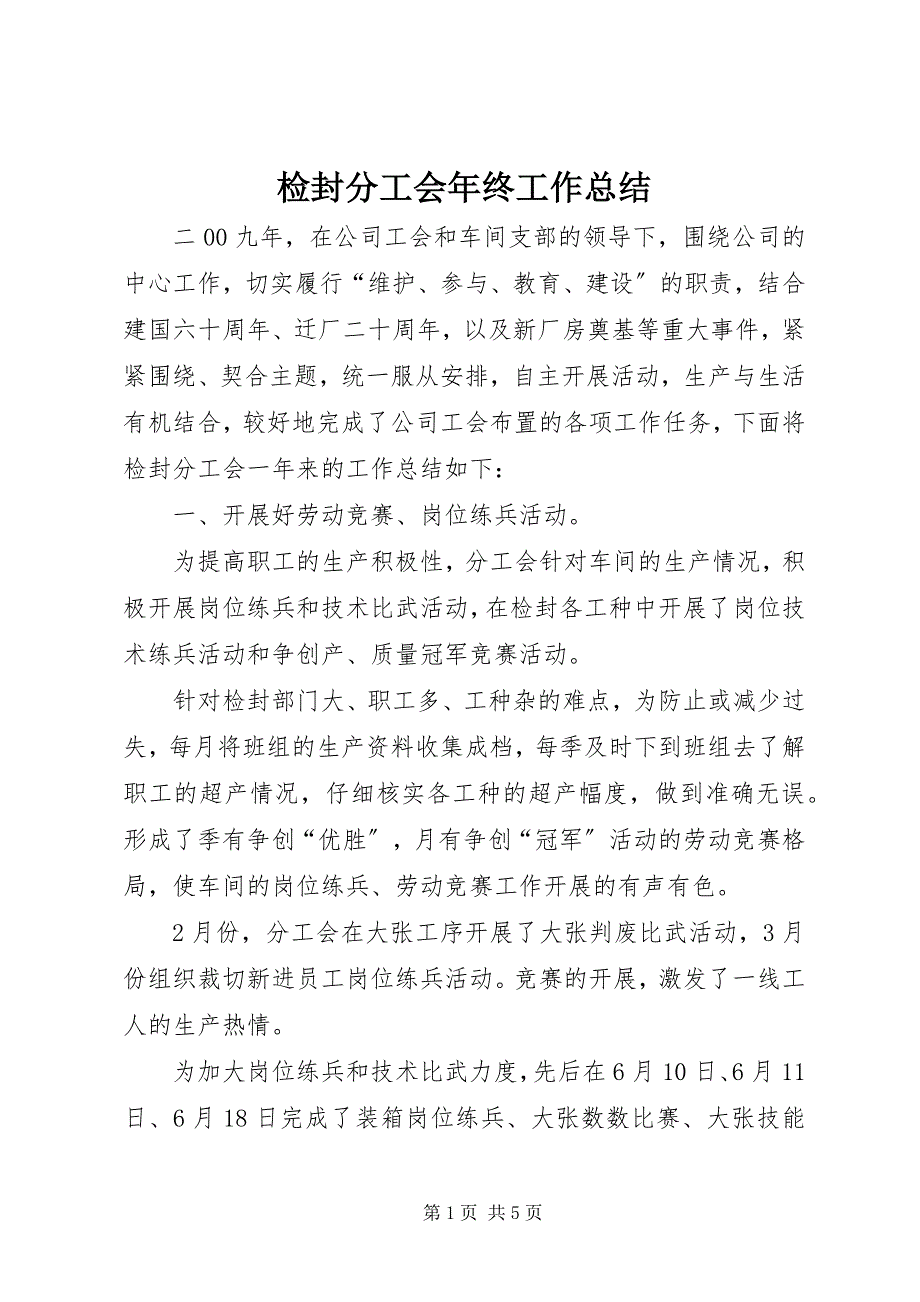 检封分工会年终工作总结
二 00 九年，在公司工会和车间支部的领导下，围绕公司的
中心工作，切实履行“维护、参与、教育、建设〞的职责，结合
建国六十周年、迁厂二十周年，以及新厂房奠基等重大事件，紧
紧围绕、契合主题，统一服从安排，自主开展活动，生产与生活
有机结合，较好地完成了公司工会布置的各项工作任务，下面将
检封分工会一年来的工作总结如下：
一、开展好劳动竞赛、岗位练兵活动。
为提高职工的生产积极性，分工会针对车间的生产情况，积
极开展岗位练兵和技术比武活动，在检封各工种中开展了岗位技
术练兵活动和争创产、质量冠军竞赛活动。
针对检封部门大、职工多、工种杂的难点，为防止或减少过
失，每月将班组的生产资料收集成档，每季及时下到班组去了解
职工的超产情况，仔细核实各工种的超产幅度，做到准确无误。
形成了季有争创“优胜〞，月有争创“冠军〞活动的劳动竞赛格
局，使车间的岗位练兵、劳动竞赛工作开展的有声有色。
2 月份，分工会在大张工序开展了大张判废比武活动，3 月
份组织裁切新进员工岗位练兵活动。竞赛的开展，激发了一线工
人的生产热情。
为加大岗位练兵和技术比武力度，先后在 6 月 10 日、6 月 11
日、6 月 18 日完成了装箱岗位练兵、大张数数比赛、大张技能
第 1 页 共 5 页